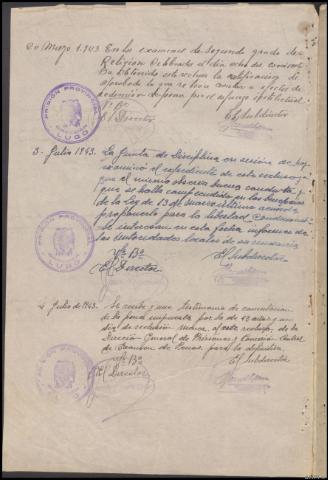 Marzo 1.943 En los examenes de segundo grado de
Religion celebrados el día ocho del corriente
ha obtenido este recluso la calificacion de
aprobado
redencion
Vº Bº
El Director
El Subdirector
PRISIÓN PROVINCIAL
LUGO
3 - Julio 1943. La Junta de Disciplina en sesión de hoy
examinó el expediente de este recluso y
que el mismo observa buena conducta y
que se halla comprendido en los beneficios
de la Ley de 13 de marzo último acordó
proponerlo para la libertad condicional
Se interesan en esta fecha informes de
las autoridades locales de su vecindad
Vº Bº
El Director
El Subdirector
PRISIÓN PROVINCIAL
LUGO
4 Julio de 1943. Se recibe y une testimonio de conmutacion
de la pena impuesta por la de 12 años y un
dia de reclusión menor, al este recluso, de la
Dirección General de Prisiones y Comisión Central
de Examen de Penas, para la definitiva.
Vº Bº
El Director
El Subdirector
PRISIÓN PROVINCIAL
LUGO